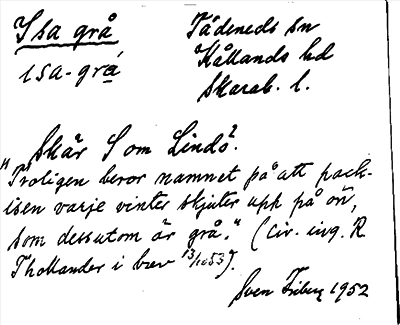 Isa grå
ısa-grá
Tådeneds sn
Kållands hd
Skarab. l.
Skär S om Lindö?
"Troligen beror namnet på att pack-
isen varje vinter skjuter upp på ön,
som dessutom är grå." (Civ. ing. R
Thollander i brev 13/10 53).
Sven Friberg 1952